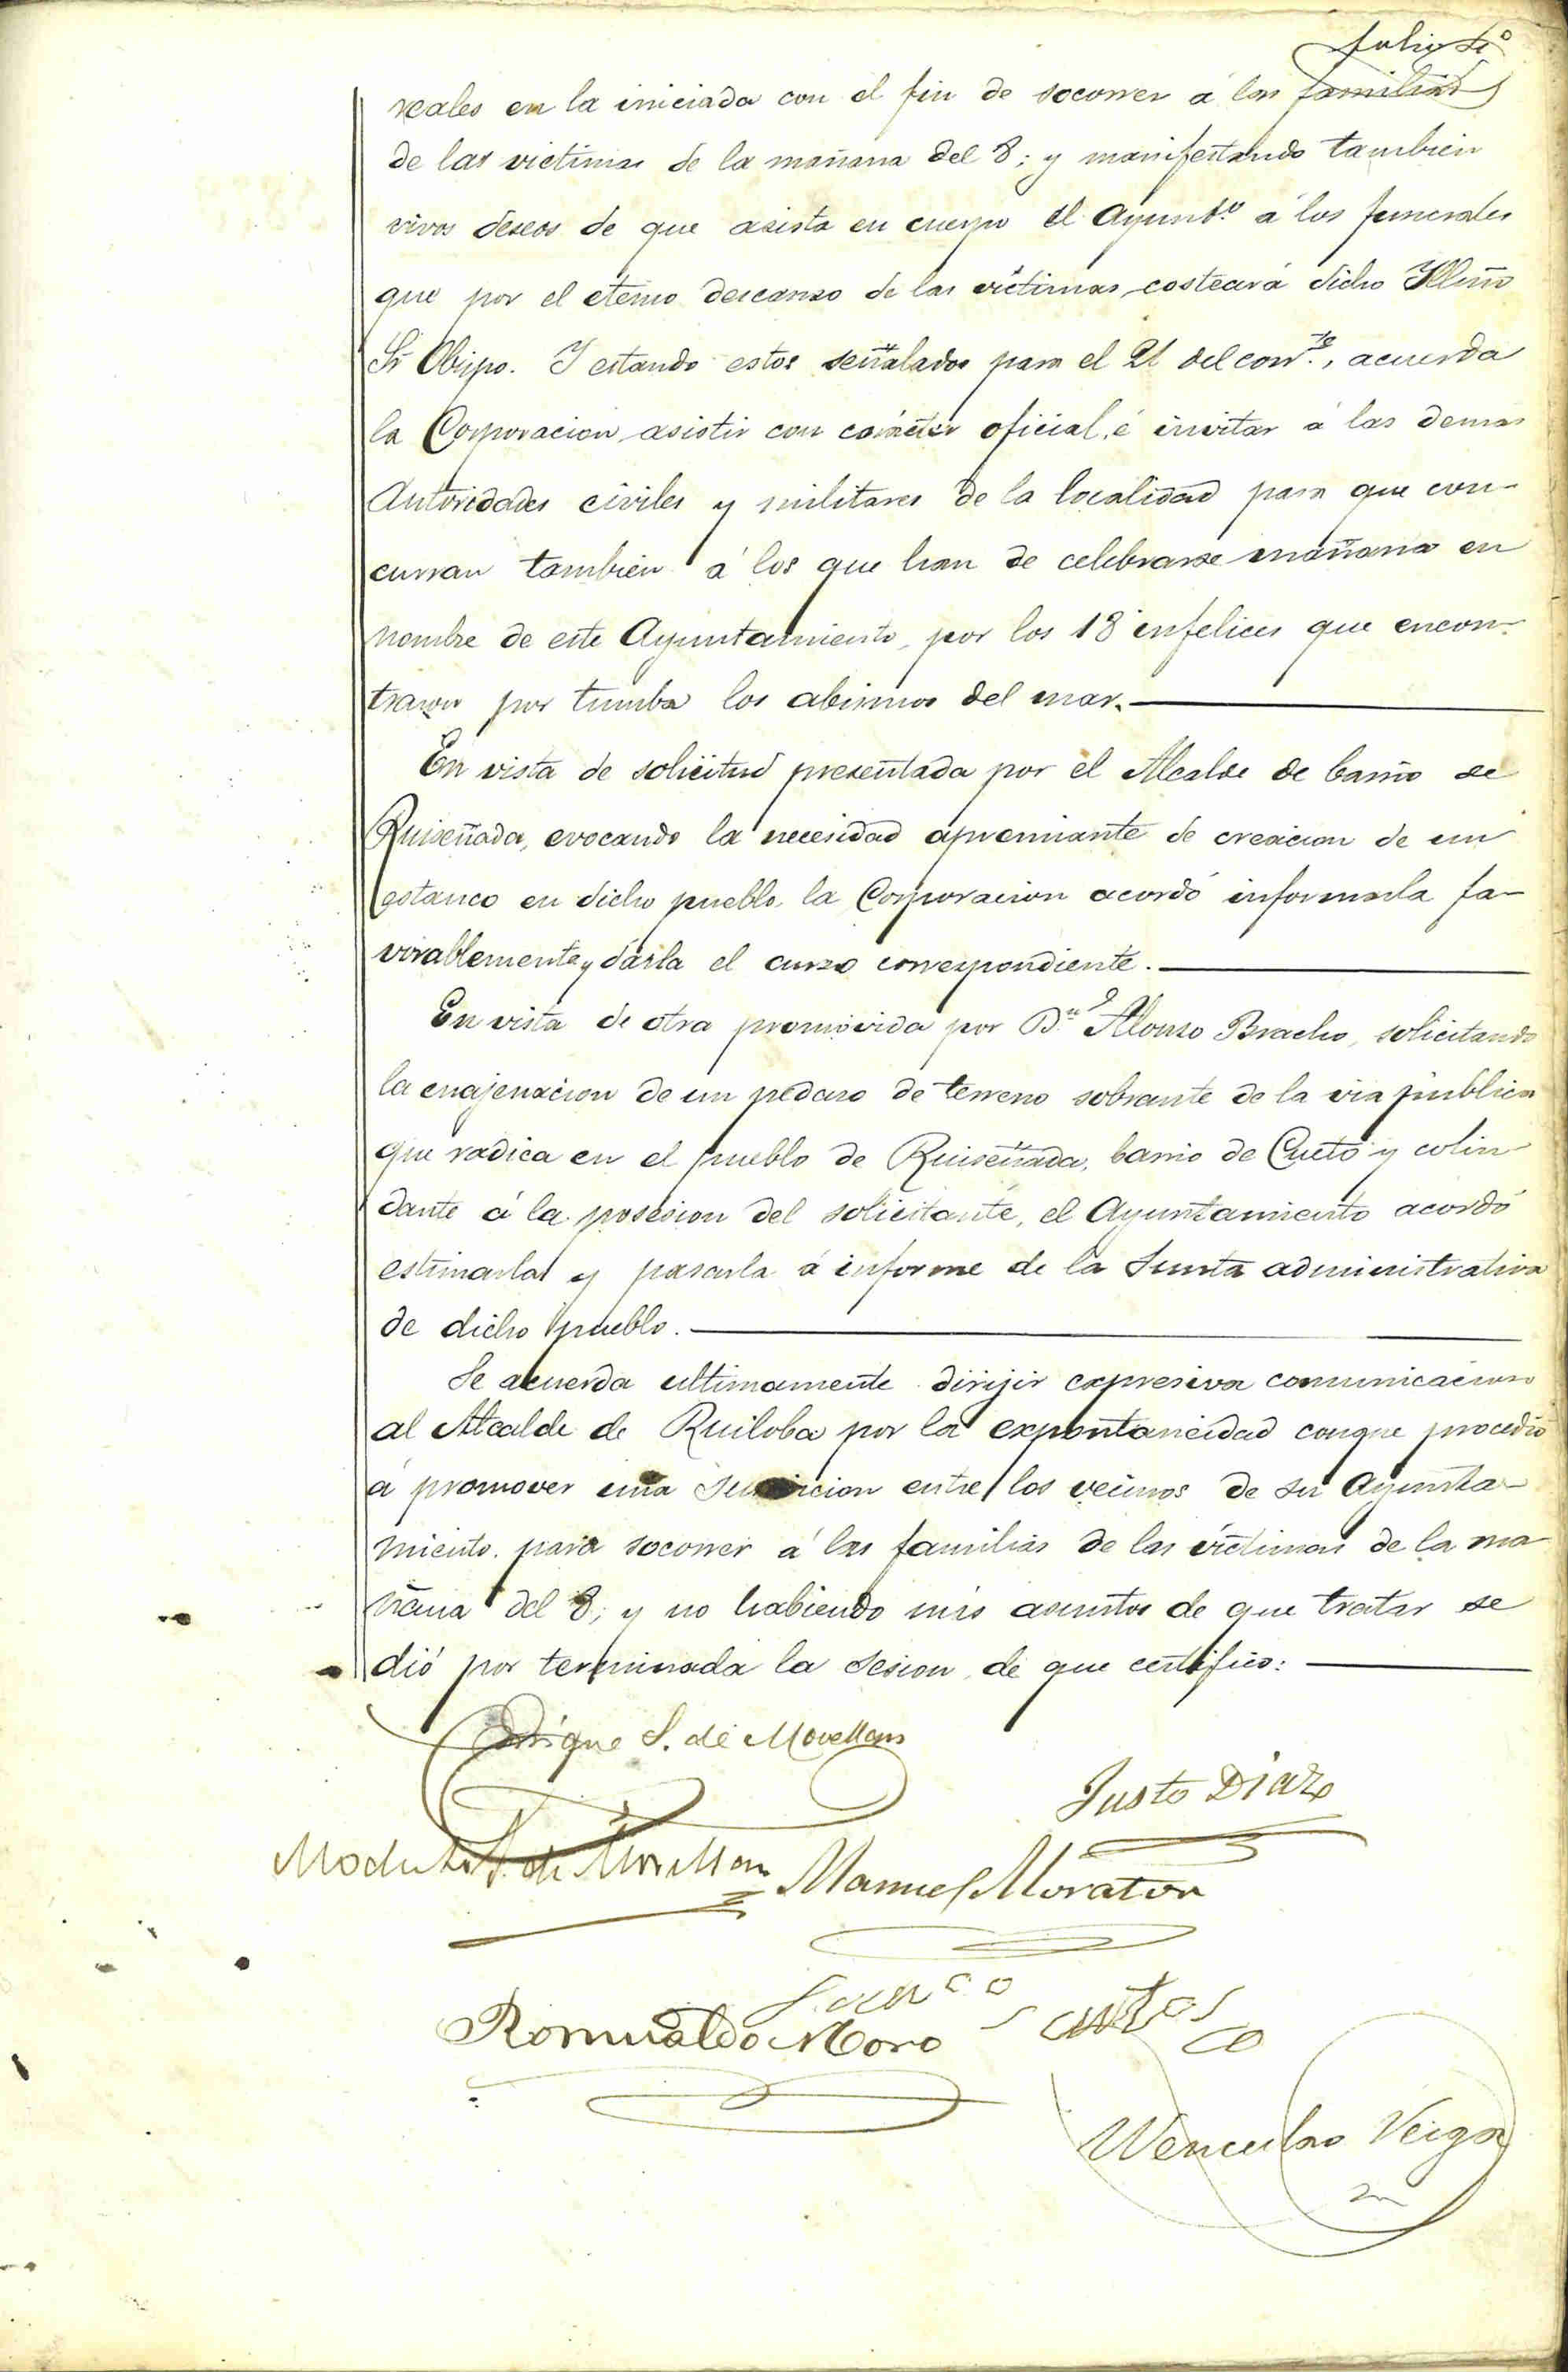 reales en la iniciada con el fin de socorrer á las familias
de las victimas de la mañana del 8; y manifestando tambien
vivos deseos de que asista en cuerpo el Ayunt.º á los funerales
que por el eterno descanso de las victimas costeará dicho Yllmo
Sr Obispo. Y estando estos señalados para el 21 del corr.te, acuerda
la Corporacion asistir con carácter oficial, é invitar á las demas
Autoridades civiles y militares de la localidad para que con-
curran tambien á los que han de celebrarse mañana en
nombre de este Ayuntamiento, por los 18 infelices que encon-
traron por tumba los abismos del mar.
En vista de solicitud presentada por el Alcalde de barrio de
Ruiseñada, evocando la necesidad apremiante de creacion de un
estanco en dicho pueblo, la Corporacion acordó informarla fa-
vorablemente y darla el curso correspondiente.
En vista de otra promovida por D.n Alonso Bracho, solicitando
la enajenacion de un pedazo de terreno sobrante de la via pública
que radica en el pueblo de Ruiseñada, barrio de Cueto y colin-
dante á la posesion del solicitante, el Ayuntamiento acordó
estimarla y pasarla á informe de la Junta administrativa
de dicho pueblo.
Se acuerda ultimamente dirijir expresiva comunicacion
al Alcalde de Ruiloba por la expontaneidad conque procedió
á promover una entre los vecinos de su Ayunta-
miento para socorrer á las familias de las victimas de la ma
ñana del 8; y no habiendo más asuntos de que tratar se
dió por terminada la sesion, de que certifico:
Enrique S. de Movellan
Justo Diaz
Modesto S. de Movellan Manuel Moraton
Romualdo Moro
Santos
Wenceslao Veiga